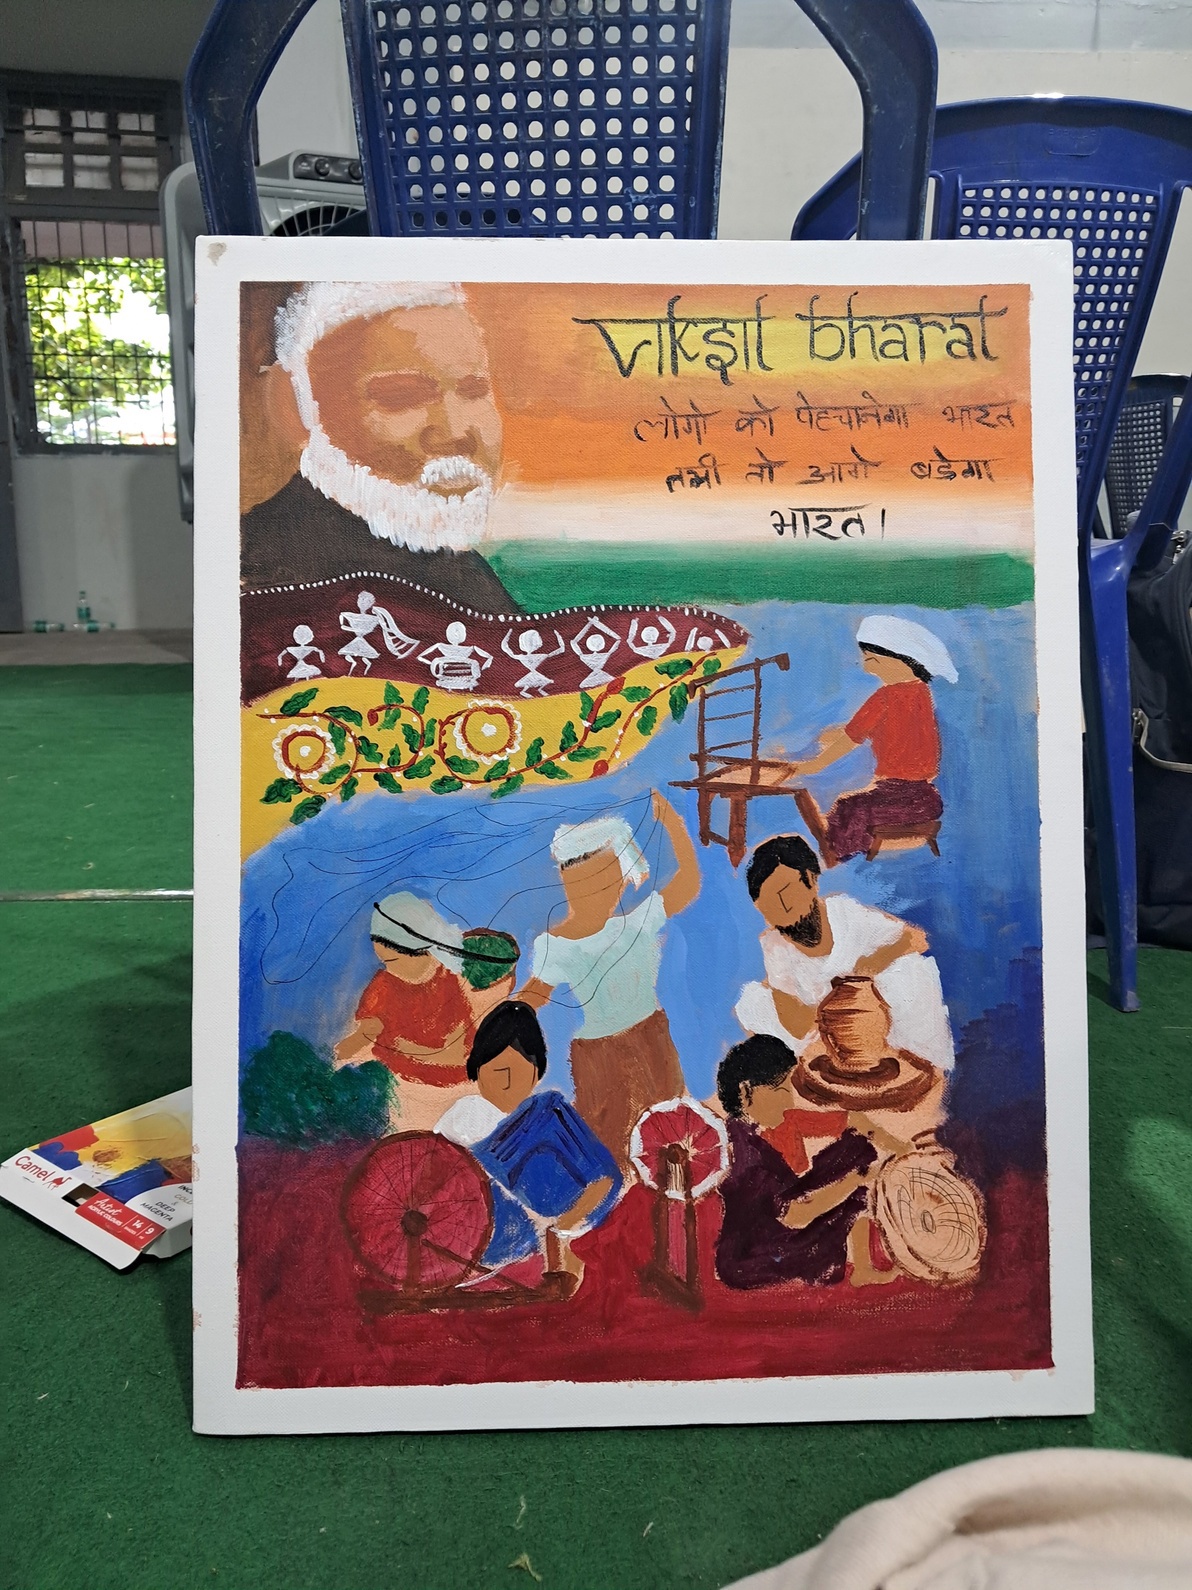 viksit bharat
लोगो को पेहचानेगा भारत
तभी तो आगे बडेगा
भारत।
Camel
Artist
ACRYLIC COLOURS
14
9
DEEP
MAGENTA